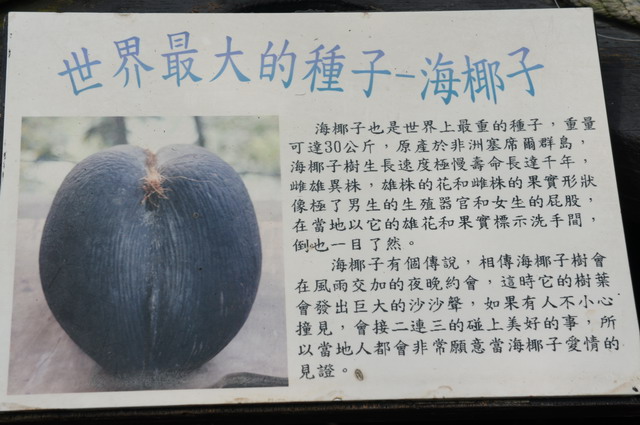 世界最大的種子-海椰子
海椰子也是世界上最重的種子，重量
可達30公斤，原產於非洲塞席爾群島，
海椰子樹生長速度極慢壽命長達千年，
雌雄異株，雄株的花和雌株的果實形狀
像極了男生的生殖器官和女生的屁股，
在當地以它的雄花和果實標示洗手間，
倒也一目了然。
海椰子有個傳說，相傳海椰子樹會
在風雨交加的夜晚約會，這時它的樹葉
會發出巨大的沙沙聲，如果有人不小心
撞見，會接二連三的碰上美好的事，所
以當地人都會非常願意當海椰子愛情的
見證。